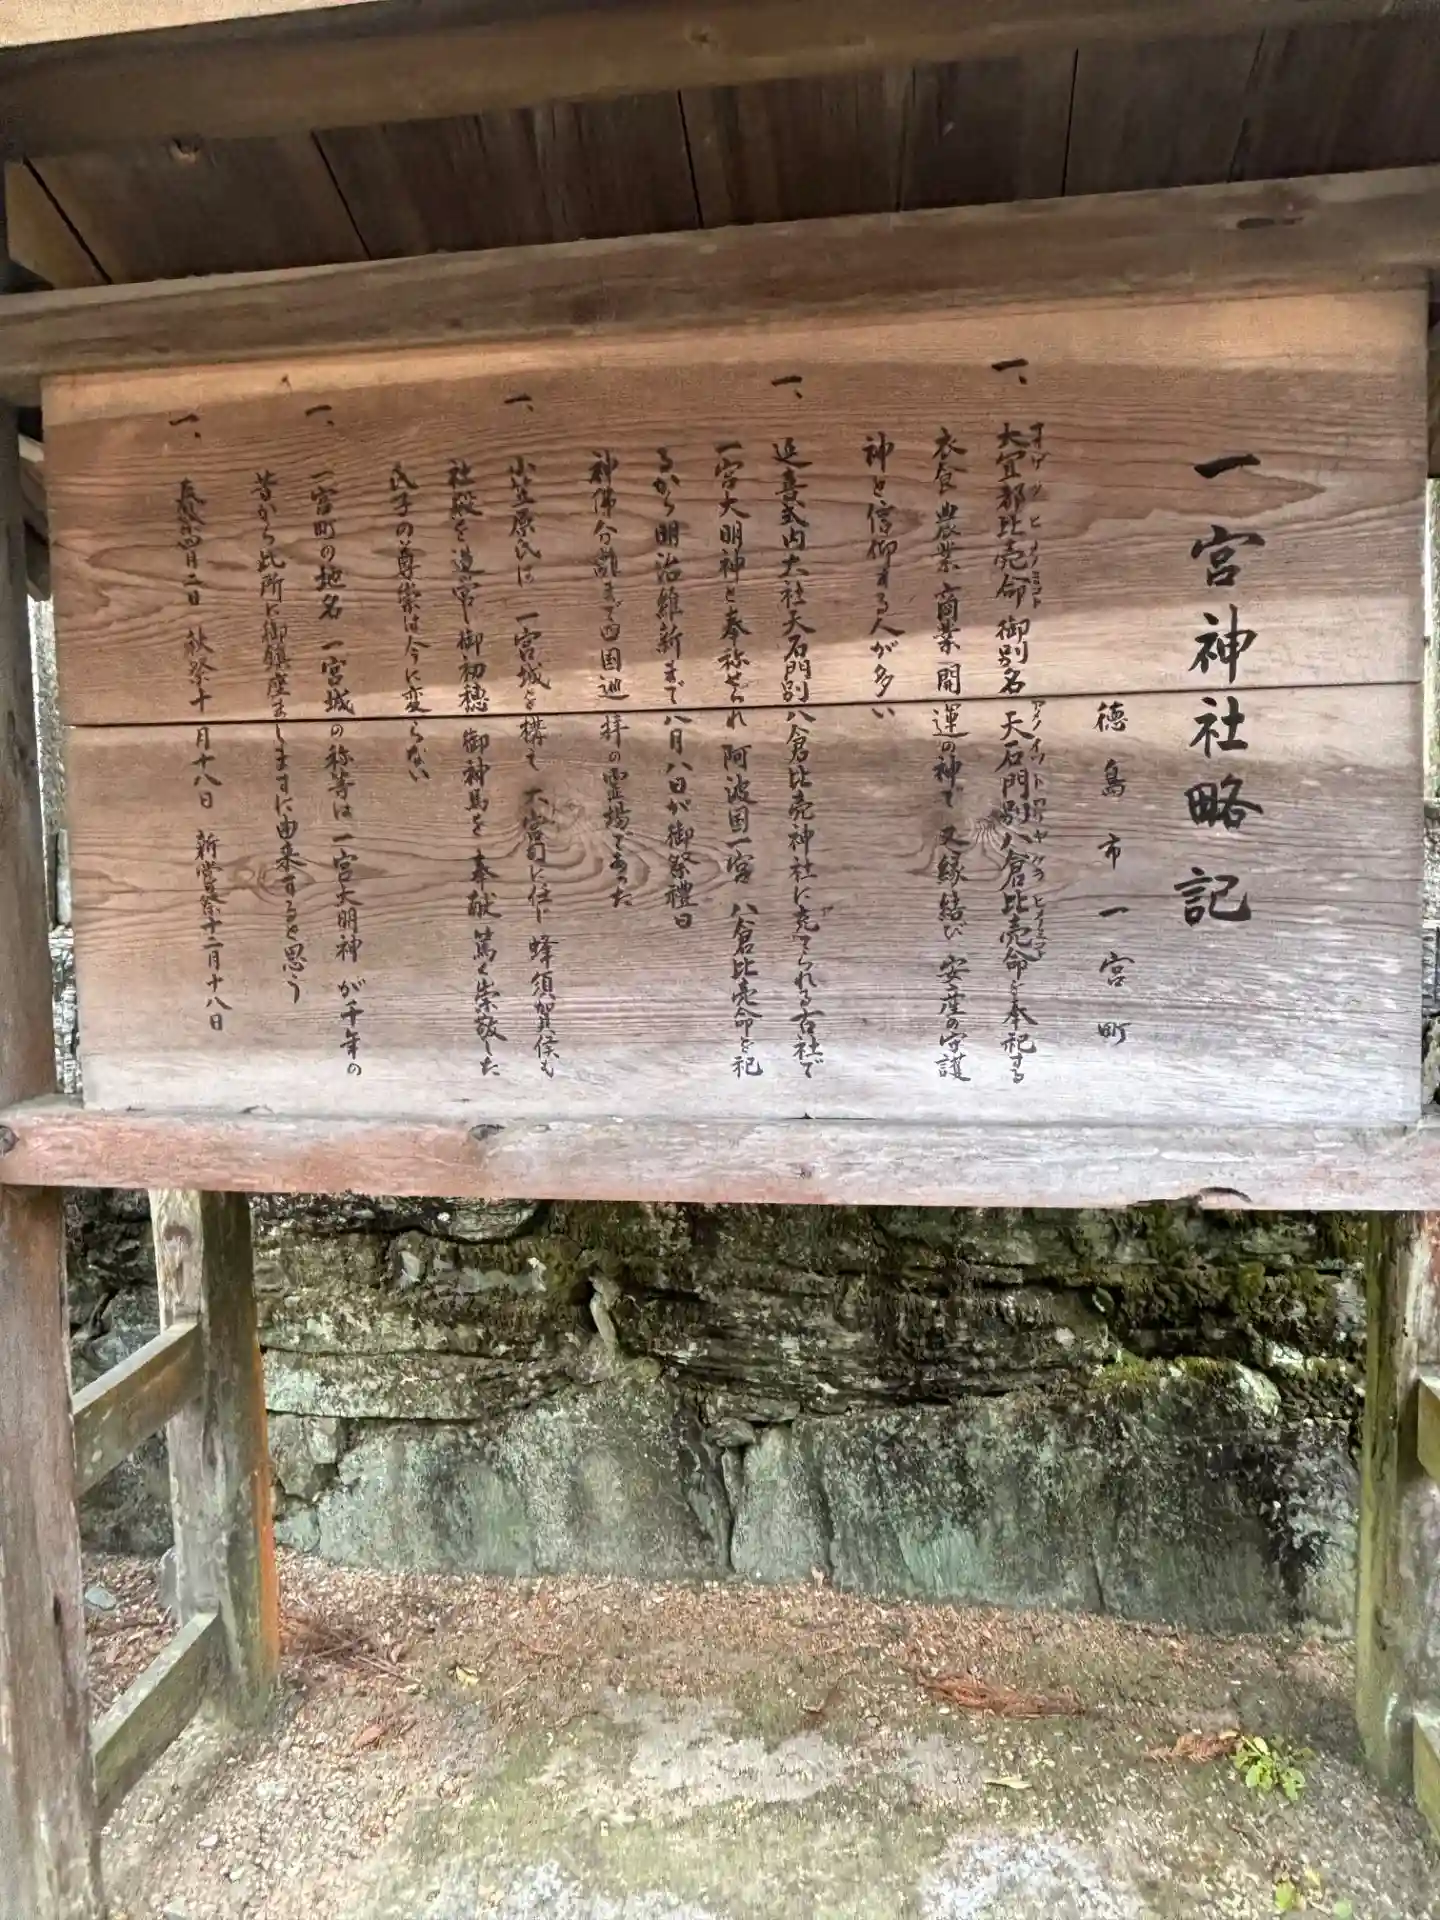 一宮神社略記
徳島市一宮町
一、大宜都比売命 御別名 天石門別八倉比売命を奉祀する
衣食 農業 商業 開運の神で 又縁結び 安産の守護
神と信仰する人が多い
一、延喜式内大社天石門別八倉比売神社に充てられる古社で
一宮大明神と奉称せられ 阿波国一宮 八倉比売命を祀
るから明治維新まで八月八日が御祭禮日
神佛分離まで四国巡拝の霊場であった
一、小笠原氏は 一宮城を構て 大宮司に任じ 蜂須賀侯も
社殿を造営し御初穂 御神馬を 奉献 篤く崇敬した
氏子の尊崇は今に変らない
一、一宮町の地名 一宮城の称等は 一宮大明神 が千年の
昔から此所に御鎮座ましますに由来すると思う
一、春祭四月二日 秋祭十月十八日 新嘗祭十二月十八日